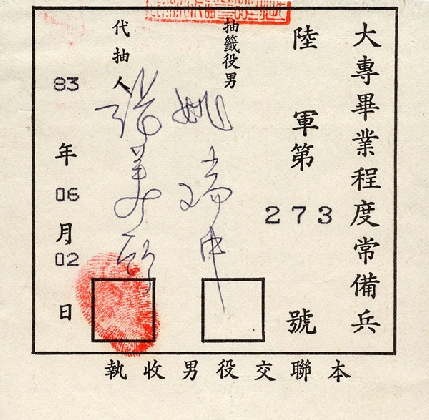 大專畢業程度常備兵
陸軍第273號
抽籤役男
姚瑞中
代抽人
83年06月02日
本聯交役男收執